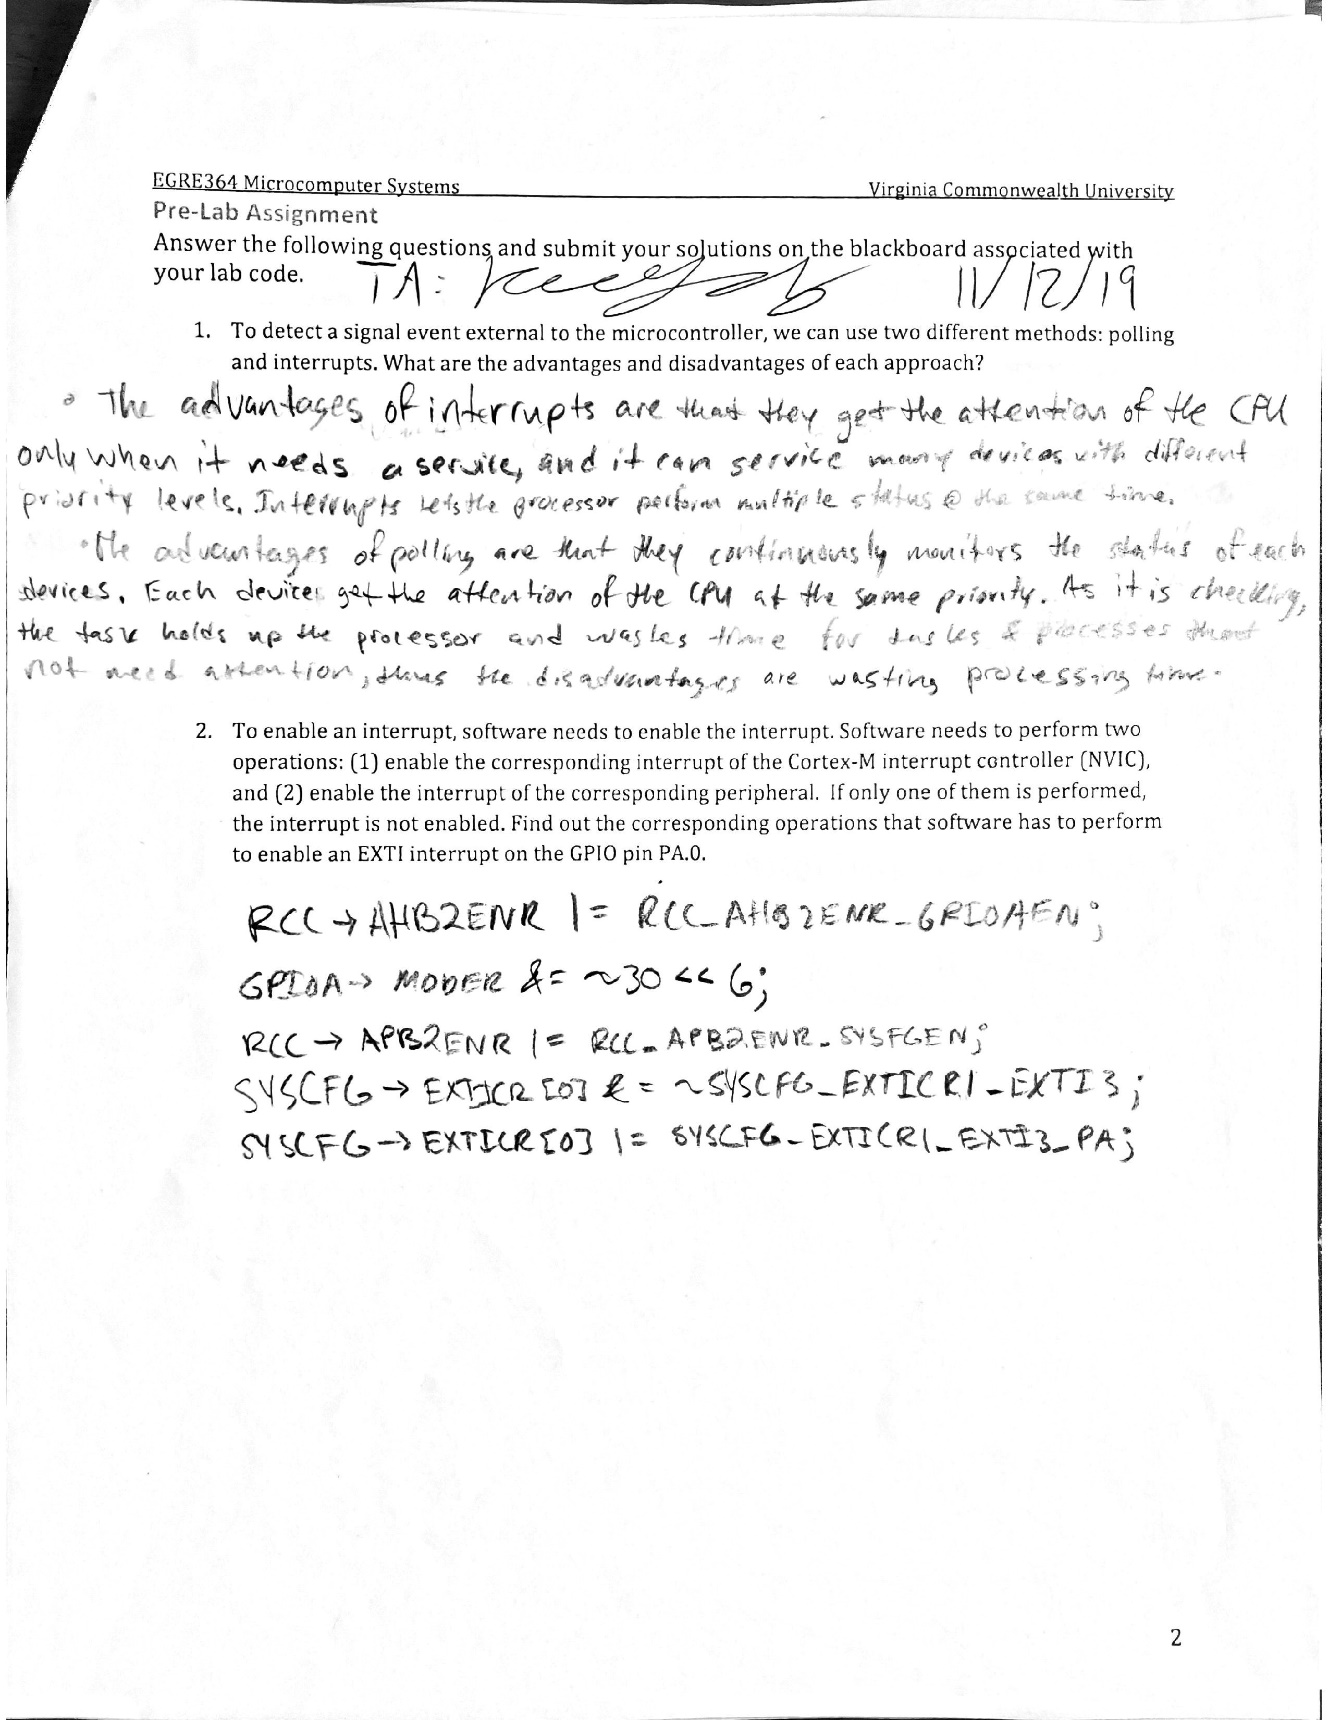 EGRE364 Microcomputer Systems Virginia Commonwealth University
Pre-Lab Assignment
Answer the following questions and submit your solutions on the blackboard associated with
your lab code. TA: 11/12/19
1. To detect a signal event external to the microcontroller, we can use two different methods: polling
and interrupts. What are the advantages and disadvantages of each approach?
• The advantages of interrupts are that they get the attention of the CPU
only when it needs a service, and it can service many devices with different
priority levels. Interrupts lets the processor perform multiple status @ the same time.
• The advantages of polling are that they continuously monitors the status of each
devices. Each devices get the attention of the CPU at the same priority. As it is checking,
the task holds up the processor and wastes time for tasks & processes that
not need attention, thus the disadvantages are wasting processing time.
2. To enable an interrupt, software needs to enable the interrupt. Software needs to perform two
operations: (1) enable the corresponding interrupt of the Cortex-M interrupt controller (NVIC),
and (2) enable the interrupt of the corresponding peripheral. If only one of them is performed,
the interrupt is not enabled. Find out the corresponding operations that software has to perform
to enable an EXTI interrupt on the GPIO pin PA.0.
RCC → AHB2ENR |= RCC_AHB2ENR_GPIOAEN;
GPIOA → MODER &= ~30 << 6;
RCC → APB2ENR |= RCC_APB2ENR_SYSFGEN;
SYSCFG → EXTICR [0] &= ~SYSCFG_EXTICR1_EXTI3;
SYSCFG → EXTICR [0] |= SYSCFG_EXTICR1_EXTI3_PA;
2